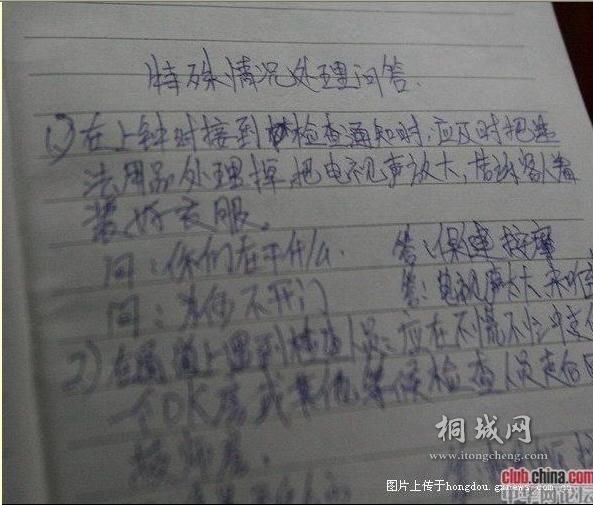 特殊情况处理问答.
1) 在上钟时接到检查通知时,应及时把违
法用品处理掉,把电视声放大,告诉客人着
装好衣服。
问:你们在干什么. 答:保健按摩
问:为何不开门 答:电视声太大,未听
2) 在通道上遇到检查人员:应在不慌不忙中走
个OK房或其他,等候检查人员走后
桐城网
www.itongcheng.com
club.china.com
中华网论坛
图片上传于hongdou.gxnews.com.cn